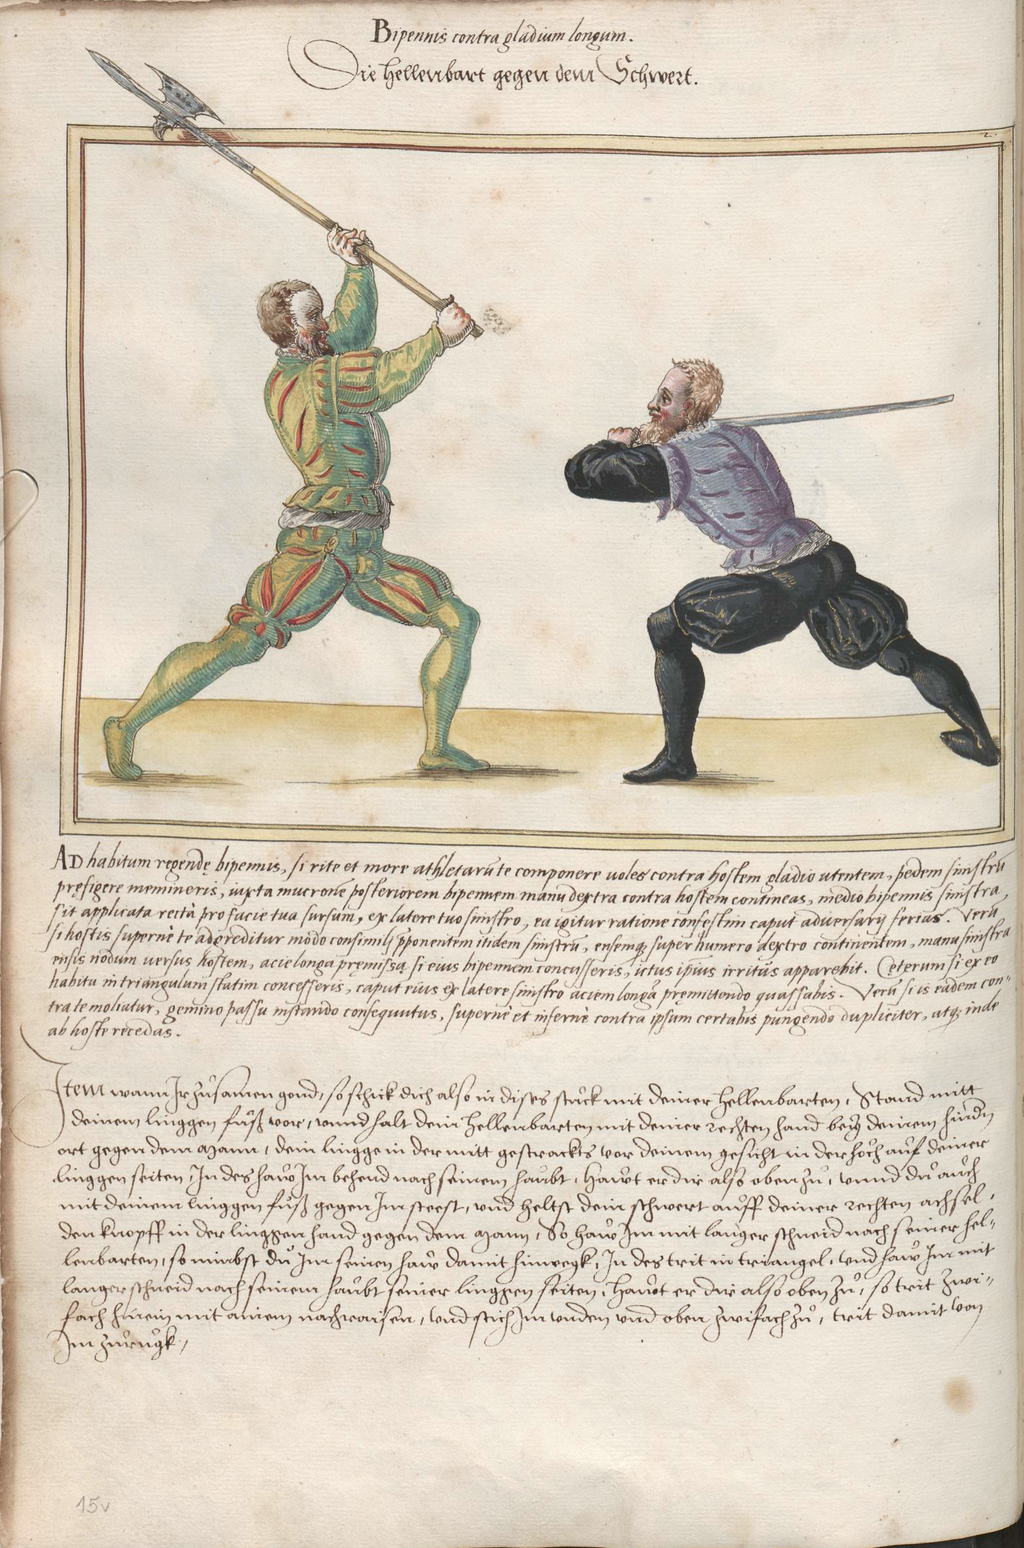 Bipennis contra gladium longum.
Die Hellenbart gegen dem Schwert.
2.
AD habitum regendę bipennis, si rite et more athletarũ te componere uoles contra hostem gladio utentem, pedem sinistrũ
prefigere memineris, iuxta mucronẽ posteriorem bipennem manu dextra contra hostem contineas, medio bipennis sinistra
sit applicata rectà pro facie tua sursum, ex latere tuo sinistro, ea igitur ratione confestim caput aduersarij ferias. Verũ
si hostis supernè te adgreditur modo consimili pponentem itidem sinistrũ, ensemq; super humero dextro continentem, manu sinistra
ensis nodum uersus hostem, acie longa premissa si eius bipennem concusseris, ictus ipsius irritus apparebit. Ceterum si ex eo
habitu in triangulum statim concesseris, caput eius ex latere sinistro aciem longã premittendo quassabis. Verũ si is eadem con-
tra te moliatur, gemino passu instando consequutus, supernè et infernè contra ipsum certabis pungendo dupliciter, atq; inde
ab hoste recedas.
Item wann Jr zůsamen gond, so schick dich also in dises stuck mit deiner hellenbarten, Stand mitt
deinem linggen fůß vor, vnnd halt dein hellenbarten mit deiner rechten hand bey deinem hindn
ort gegen dem Mann, dein lingge in der mitt gestrackts vor deinem gesicht in der hoch auf deiner
linggen seiten, In des haw Im behend nach seinem haubt, Hawt er dir alss oben zů, vnnd du auch
mit deinem linggen fůß gegen Im steest, vnd heltst dein schwert auff deiner rechten achsel,
den knopff in der linggen hand gegen dem Mann, So haw Im mit langer schneid nach seiner hel-
lenbarten, so nimbst du Im seinen haw damit hinweck, In des trit in triangel, vnd haw Im mit
langer schneid nach seinem haubt seiner linggen seiten, Hawt er dir also oben zů, so trit zwi-
fach hinein mit ainem nachraisen, vnd stich Im vnden vnd oben zwifach zů, trit damit von
Im zurugk,
15v